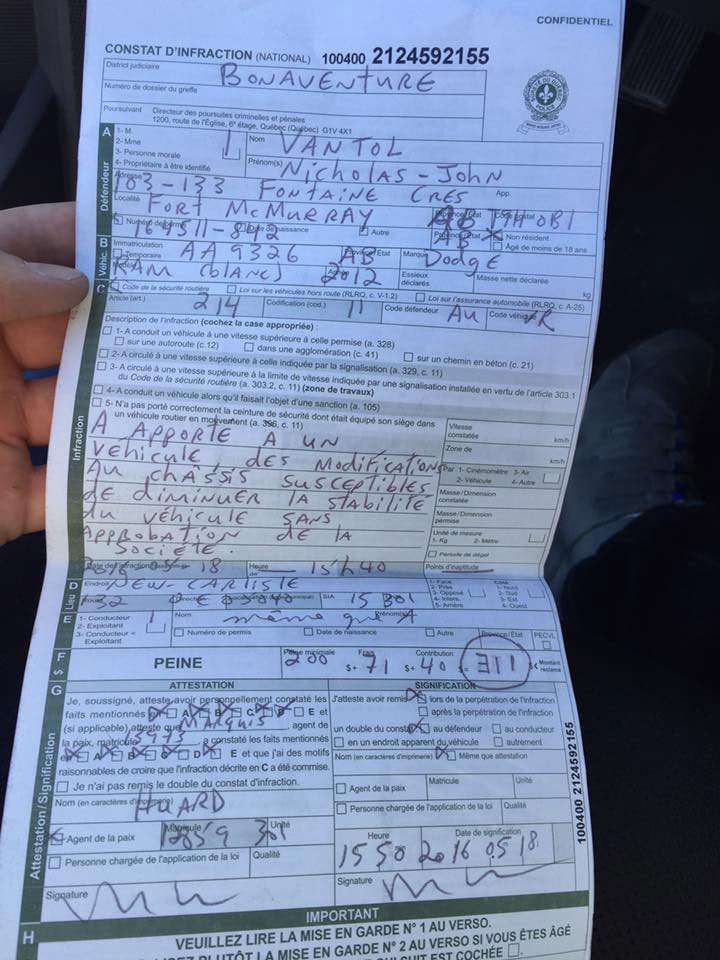 CONFIDENTIEL
CONSTAT D'INFRACTION (NATIONAL) 100400 2124592155
District judiciaire
BONAVENTURE
Numéro de dossier du greffe
Poursuivant Directeur des poursuites criminelles et pénales
1200, route de l'Église, 6e étage, Québec (Québec) G1V 4X1
A 1- M. Nom VANTOL
2- Mme 1
3- Personne morale Prénom(s) Nicholas-John
4- Propriétaire à être identifié
Défendeur
Adresse 103-133 FONTAINE CRES App.
Localité FORT McMURRAY AB
Autre AB Non résident
Âgé de moins de 18 ans
B Véhic. Immatriculation AA9326 AB Marque Dodge
Temporaire
RAM (blanc) 2012 Essieux déclarés Masse nette déclarée kg
C Code de la sécurité routière Loi sur les véhicules hors route (RLRQ, c. V-1.2) Loi sur l'assurance automobile (RLRQ, c. A-25)
Article (art.) 214 Codification (cod.) 11 Code défendeur AU Code véhicule VR
Description de l'infraction (cochez la case appropriée) :
1- A conduit un véhicule à une vitesse supérieure à celle permise (a. 328)
sur une autoroute (c.12) dans une agglomération (c. 41) sur un chemin en béton (c. 21)
2- A circulé à une vitesse supérieure à celle indiquée par la signalisation (a. 329, c. 11)
3- A circulé à une vitesse supérieure à la limite de vitesse indiquée par une signalisation installée en vertu de l'article 303.1
du Code de la sécurité routière (a. 303.2, c. 11) (zone de travaux)
4- A conduit un véhicule alors qu'il faisait l'objet d'une sanction (a. 105)
5- N'a pas porté correctement la ceinture de sécurité dont était équipé son siège dans
un véhicule routier en mouvement (a. 396, c. 11)
Infraction
A APPORTÉ À UN
VÉHICULE, DES MODIFICATIONS
AU CHÂSSIS SUSCEPTIBLES
DE DIMINUER LA STABILITÉ
DU VÉHICULE SANS
APPROBATION DE LA
SOCIÉTÉ.
Vitesse constatée km/h
Zone de km/h
Par 1- Cinémomètre 3- Air
2- Véhicule 4- Autre
Masse/Dimension constatée
Masse/Dimension permise
Unité de mesure
1- Kg 2- Mètre
Période de dégel
Points d'inaptitude
18 Heure 15h40
D Lieu Endroit NEW-CARLISLE
SIA
E 1- Conducteur 1 Nom même que A
2- Exploitant
3- Conducteur = Exploitant
Numéro de permis Date de naissance Autre Province/État PECVL
F $ PEINE Peine minimale 200 Frais $+ 71 Contribution $+ 40 311 Montant réclamé
G ATTESTATION SIGNIFICATION
Attestation/Signification
Je, soussigné, atteste avoir personnellement constaté les
faits mentionnés A B C D E et
(si applicable) atteste que Marquis, agent de
la paix, matricule a constaté les faits mentionnés
en A B C D E et que j'ai des motifs
raisonnables de croire que l'infraction décrite en C a été commise.
Je n'ai pas remis le double du constat d'infraction.
Nom (en caractères d'imprimerie) HUARD
Agent de la paix Matricule Unité
Personne chargée de l'application de la loi Qualité
Signature
J'atteste avoir remis lors de la perpétration de l'infraction
après la perpétration de l'infraction
un double du constat au défendeur au conducteur
en un endroit apparent du véhicule autrement
Nom (en caractères d'imprimerie) Même que attestation
Agent de la paix Matricule Unité
Personne chargée de l'application de la loi Qualité
Heure Date de signification
15 50 2016 05 18
Signature
100400 2124592155
H IMPORTANT
VEUILLEZ LIRE LA MISE EN GARDE N° 1 AU VERSO.
PLUTÔT LA MISE EN GARDE N° 2 AU VERSO SI VOUS ÊTES ÂGÉ